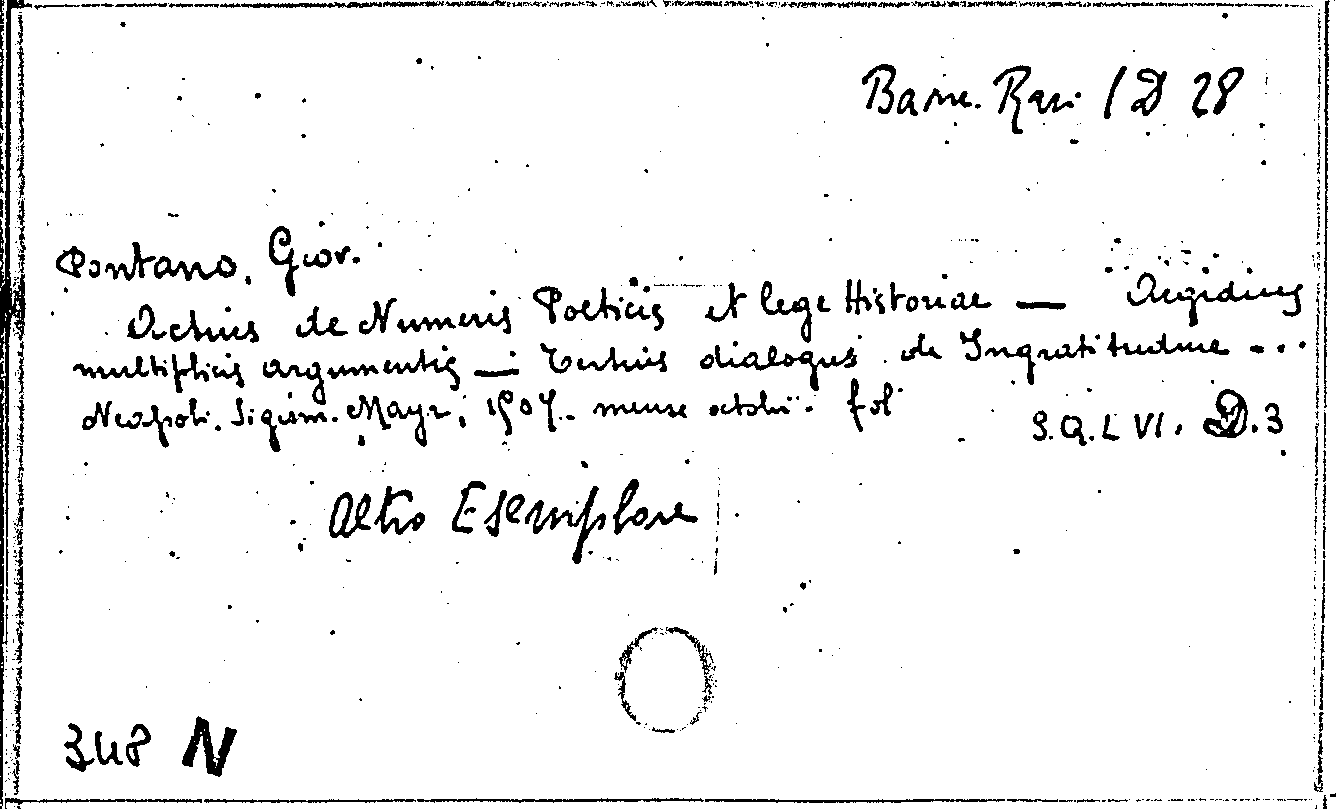 Banc. Rari 1 D 28
Pontano, Giov.
Actius de Numeris Poeticis et lege Historiae — Aegidius
multiplicis argumentis — Tertius dialogus de Ingratitudine ...
Neapoli. Sigism. Mayr, 1507. mense octobri. fol
S.Q.L VI. D.3
Altro Esemplare
348 N